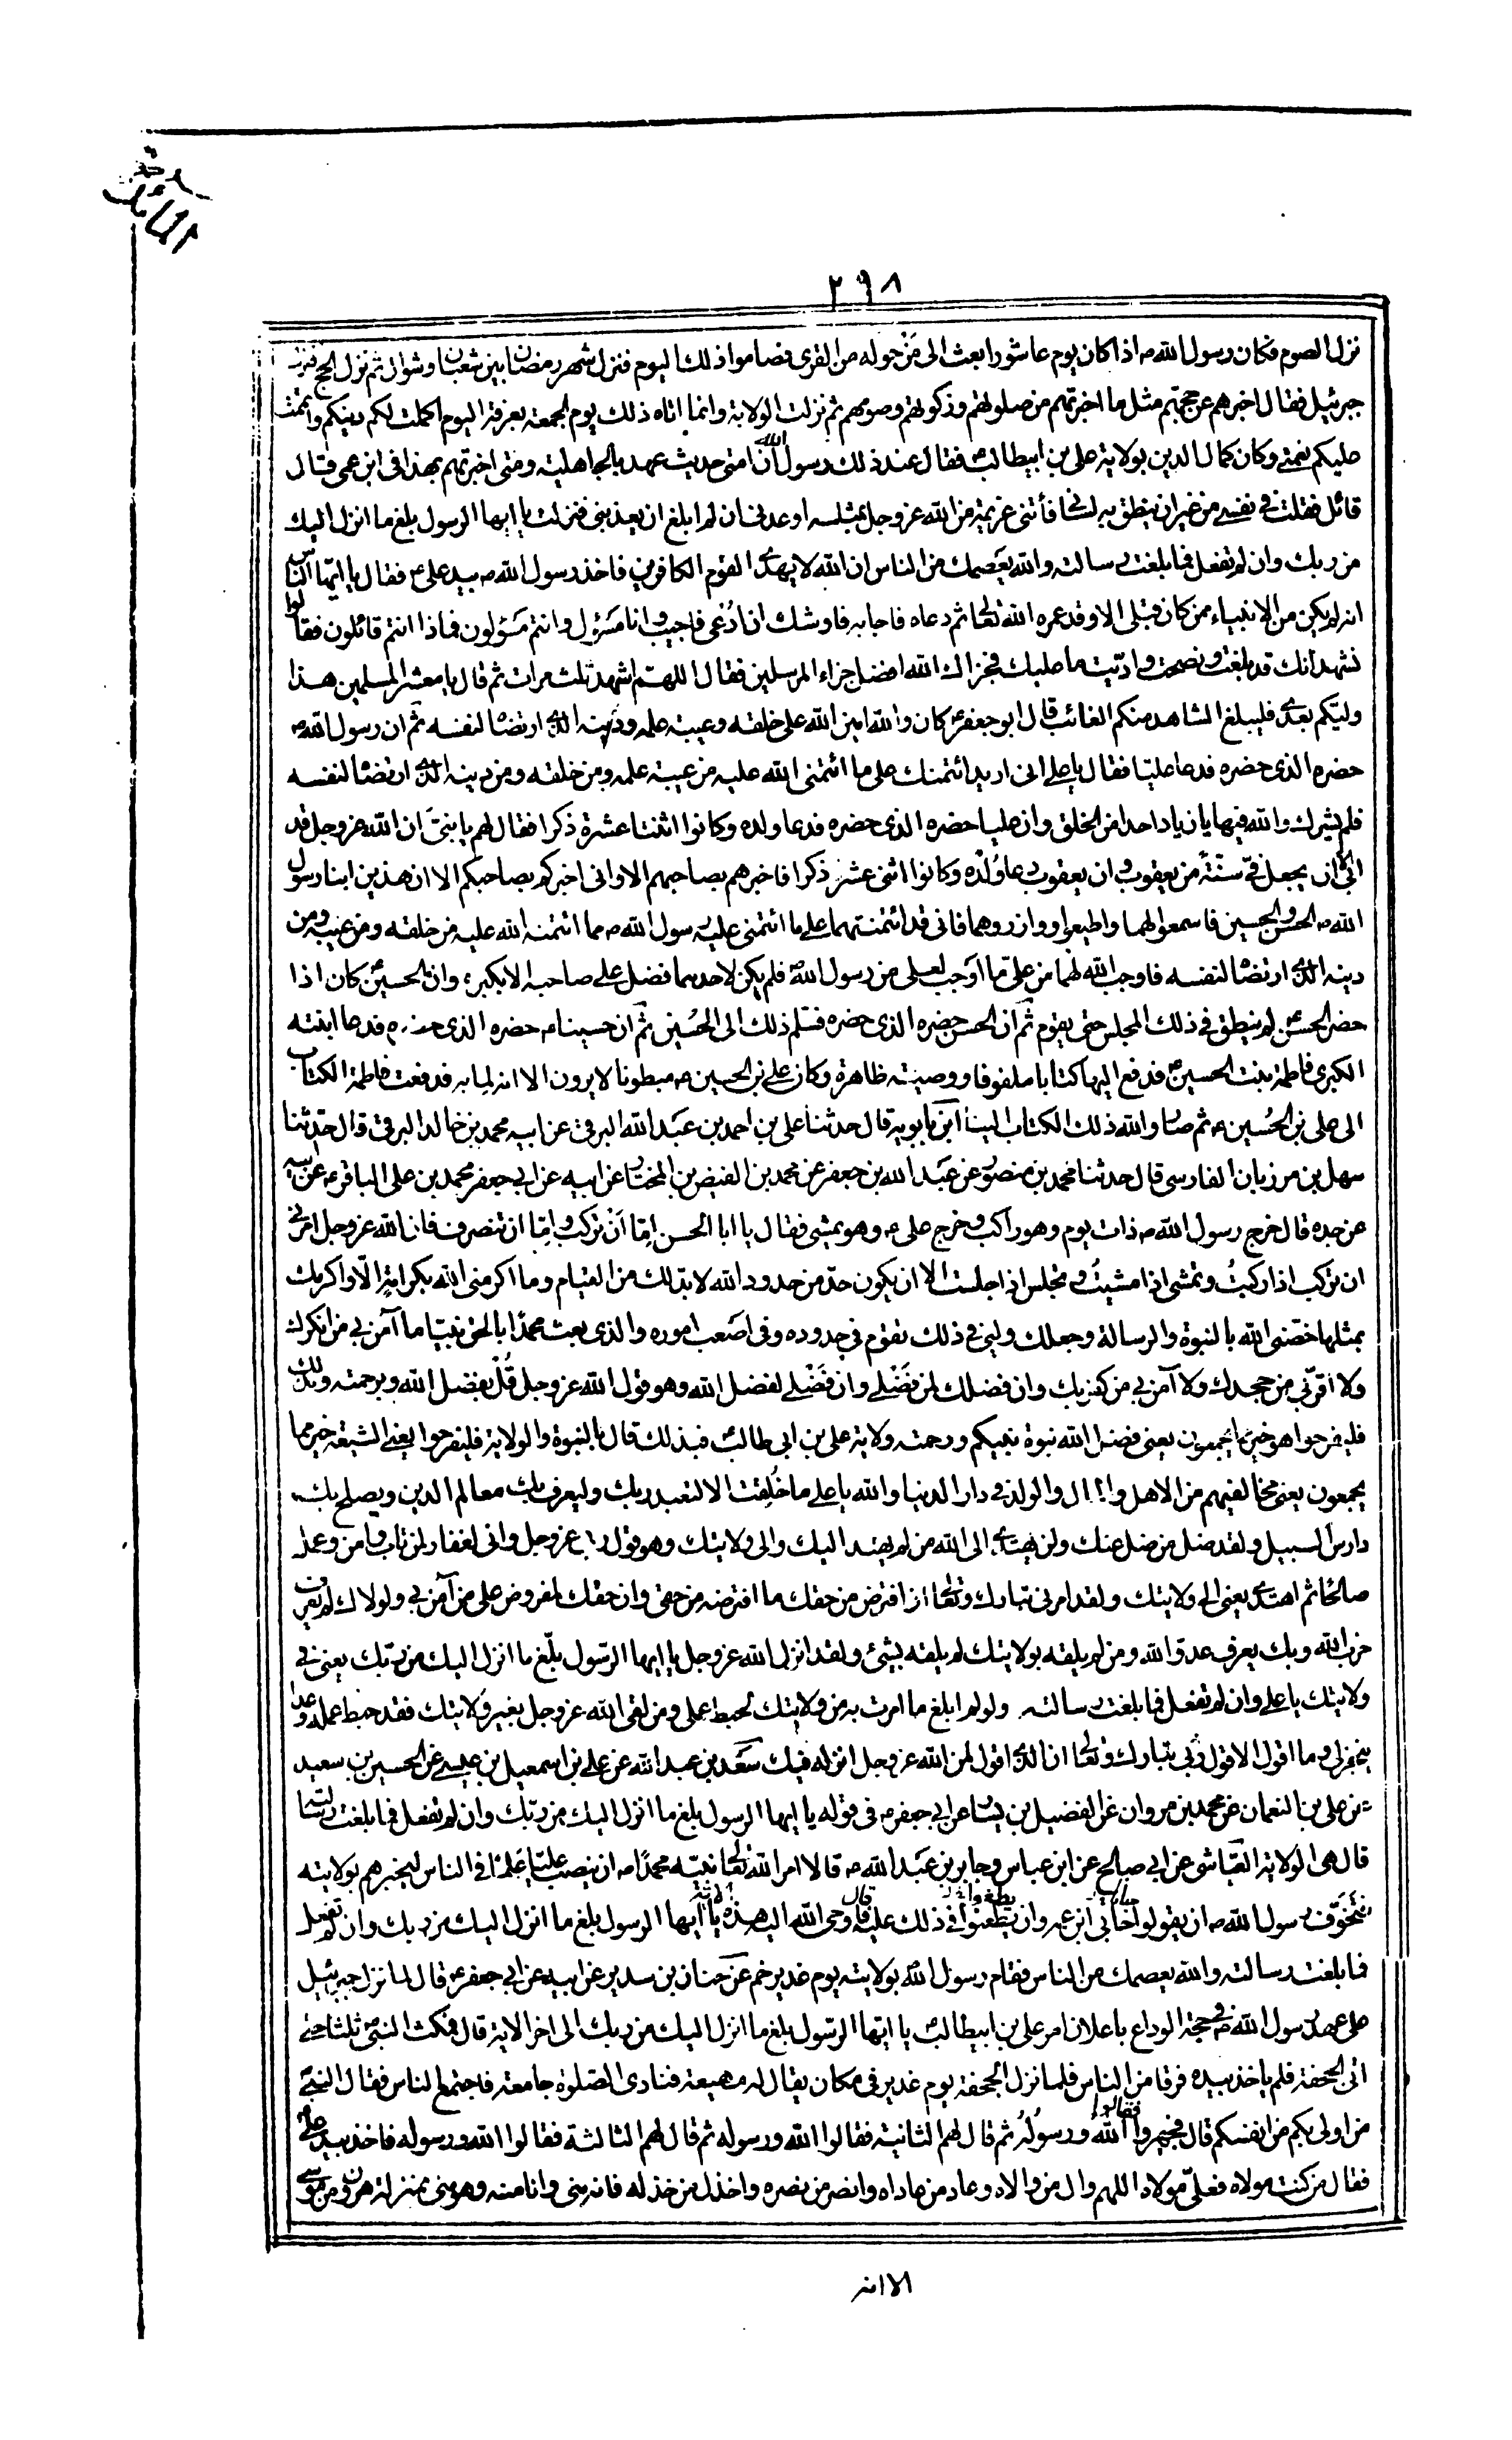 ٢٩٨
نزل الصوم فكان رسول الله ص اذا كان يوم عاشورا بعث الى من حوله من القرى فصاموا ذلك اليوم فنزل شهر رمضان بين شعبان وشوال ثم نزل الحج فنزل
جبرئيل فقال اخبرهم عن حجهم مثل ما اخبرتهم من صلوتهم وزكوتهم وصومهم ثم نزلت الولاية وانما اتاه ذلك يوم الجمعة بعرفة اليوم اكملت لكم دينكم واتممت
عليكم نعمتي وكان كمال الدين بولاية علي بن ابيطالب ع فقال عند ذلك رسول الله ان امتي حديث عهد بالجاهلية ومتى اخبرتهم بهذا في ابن عمي فقال
قائل فقلت في نفسي من غير ان ينطق به لساني فأتتني عزيمة من الله عز وجل بتلة اوعدني ان لم ابلغ ان يعذبني فنزلت يا ايها الرسول بلغ ما انزل اليك
من ربك وان لم تفعل فما بلغت رسالته والله يعصمك من الناس ان الله لا يهدي القوم الكافرين فاخذ رسول الله ص بيد علي ع فقال يا ايها الناس
انه لم يكن من الانبياء ممن كان قبلي الا وقد عمره الله تعالى ثم دعاه فاجابه فاوشك ان ادعى فاجيب وانا مسؤل وانتم مسؤلون فماذا انتم قائلون فقالوا
نشهد انك قد بلغت ونصحت واديت ما عليك فجزاك الله افضل جزاء المرسلين فقال اللهم اشهد ثلث مرات ثم قال يا معشر المسلمين هذا
وليكم بعدي فليبلغ الشاهد منكم الغائب قال ابو جعفر ع كان والله امين الله على خلقه وعيبة علمه ودينه الذي ارتضاه لنفسه ثم ان رسول الله ص
حضره الذي حضره فدعا عليا فقال يا علي اني اريد ائتمنك على ما ائتمنني الله عليه من عيبة علمه ومن خلقه ومن دينه الذي ارتضاه لنفسه
فلم يشرك والله فيها يا زياد احدا من الخلق وان عليا حضره الذي حضره فدعا ولده وكانوا اثنتا عشرة ذكرا فقال لهم يا بني ان الله عز وجل قد
ابى الا ان يجعل في سنة من يعقوب وان يعقوب دعا ولده وكانوا اثنى عشر ذكرا فاخبرهم بصاحبهم الا واني اخبركم بصاحبكم الا ان هذين ابنا رسول
الله ص الحسن والحسين فاسمعوا لهما واطيعوا ووازروهما فاني قد ائتمنتهما على ما ائتمنني عليه رسول الله ص مما ائتمنه الله عليه من خلقه ومن عيبه ومن
دينه الذي ارتضاه لنفسه فاوجب الله لهما من علي ما اوجب لعلي من رسول الله ص فلم يكن لاحدهما فضل على صاحبه الا بكبره وان الحسين كان اذا
حضر الحسن ع لم ينطق في ذلك المجلس حتى يقوم ثم ان الحسن حضره الذي حضره فسلم ذلك الى الحسين ثم ان حسينا ع حضره الذي حضره فدعا ابنته
الكبرى فاطمة بنت الحسين ع فدفع اليها كتابا ملفوفا ووصية ظاهرة وكان علي بن الحسين ع مبطونا لا يرون الا انه لما به فدفعت فاطمة الكتاب
الى علي بن الحسين ع ثم صار والله ذلك الكتاب الينا ابن بابويه قال حدثنا علي بن احمد بن عبد الله البرقي عن ابيه محمد بن خالد البرقي قال حدثنا
سهل بن مرزبان الفارسي قال حدثنا محمد بن منصور عن عبد الله بن جعفر عن محمد بن الفيض بن المختار عن ابيه عن ابي جعفر محمد بن علي الباقر ع عن ابيه
عن جده قال خرج رسول الله ص ذات يوم وهو راكب وخرج علي ع وهو يمشي فقال يا ابا الحسن اما ان تركب واما ان تنصرف فان الله عز وجل امرني
ان تركب اذا ركبت وتمشي اذا مشيت وتجلس اذا جلست الا ان يكون حد من حدود الله لا بد لك من القيام وما اكرمني الله بكرامة الا واكرمك
بمثلها خصني الله بالنبوة والرسالة وجعلك وليي في ذلك تقوم في حدوده وفي اصعب اموره والذي بعث محمدا بالحق نبيا ما آمن بي من انكرك
ولا اقر بي من جحدك ولا آمن بي من كفر بك وان فضلك لمن فضلي وان فضلي لفضل الله وهو قول الله عز وجل قل بفضل الله وبرحمته وبذلك
فليفرحوا هو خير مما يجمعون يعني فضل الله نبوة نبيكم ورحمته ولاية علي بن ابي طالب ع فبذلك قال بالنبوة والولاية فليفرحوا يعني الشيعة خير مما
يجمعون يعني مخالفيهم من الاهل والمال والولد في دار الدنيا والله يا علي ما خلقت الا لتعبد ربك وليعرف بك معالم الدين ويصلح بك
دارس السبيل ولقد ضل من ضل عنك ولن يهتدي الى الله من لم يهتد اليك والى ولايتك وهو قول ربي عز وجل واني لغفار لمن تاب وامن وعمل
صالحا ثم اهتدى يعني الى ولايتك ولقد امرني تبارك وتعالى ان افترض من حقك ما افترضه من حقي وان حقك لمفروض على من آمن بي ولولاك لم يعرف
حزب الله وبك يعرف عدو الله ومن لم يلقه بولايتك لم يلقه بشئ ولقد انزل الله عز وجل يا ايها الرسول بلغ ما انزل اليك من ربك يعني في
ولايتك يا علي وان لم تفعل فما بلغت رسالته ولو لم ابلغ ما امرت به من ولايتك لحبط عملي ومن لقى الله عز وجل بغير ولايتك فقد حبط عمله وغدا
ينجز لي وما اقول الا قول ربي تبارك وتعالى ان الذي اقول لمن الله عز وجل انزله فيك سعد بن عبد الله عن علي بن اسمعيل بن عيسى عن الحسين بن سعيد
عن علي بن النعمان عن محمد بن مروان عن الفضيل بن يسار عن ابي جعفر ع في قوله يا ايها الرسول بلغ ما انزل اليك من ربك وان لم تفعل فما بلغت رسالته
قال هى الولاية العياشي عن ابي صالح عن ابن عباس وجابر بن عبد الله قالا امر الله تعالى نبيه محمدا ص ان ينصب عليا علما في الناس ليخبرهم بولايته
فتخوف رسول الله ص ان يقولوا حابى ابن عمه وان يطعنوا في ذلك عليه قال فاوحى الله اليه هذه الاية يا ايها الرسول بلغ ما انزل اليك من ربك وان لم تفعل
فما بلغت رسالته والله يعصمك من الناس فقام رسول الله ص بولايته يوم غدير خم عن حنان بن سدير عن ابيه عن ابي جعفر ع قال لما نزل جبرئيل
على عهد رسول الله ص في حجة الوداع باعلان امر علي بن ابيطالب ع يا ايها الرسول بلغ ما انزل اليك من ربك الى اخر الاية قال فمكث النبي ص ثلثا حتى
اتى الجحفة فلم ياخذ بيده فرقا من الناس فلما نزل الجحفة يوم غدير في مكان يقال له مهيعة فنادى الصلوة جامعة فاجتمع الناس فقال النبي
من اولى بكم من انفسكم قال فجهروا فقالوا الله ورسوله ثم قال لهم الثانية فقالوا الله ورسوله ثم قال لهم الثالثة فقالوا الله ورسوله فاخذ بيد علي
فقال من كنت مولاه فعلي مولاه اللهم وال من والاه وعاد من عاداه وانصر من نصره واخذل من خذله فانه مني وانا منه وهو مني بمنزلة هرون من موسى
الا انه